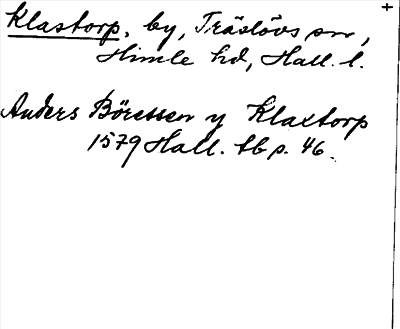 Klastorp, by, Träslövs sn,
Himle hd, Hall. l.
Anders Böressen y Klaxtorp
1579 Hall. tb p. 46.